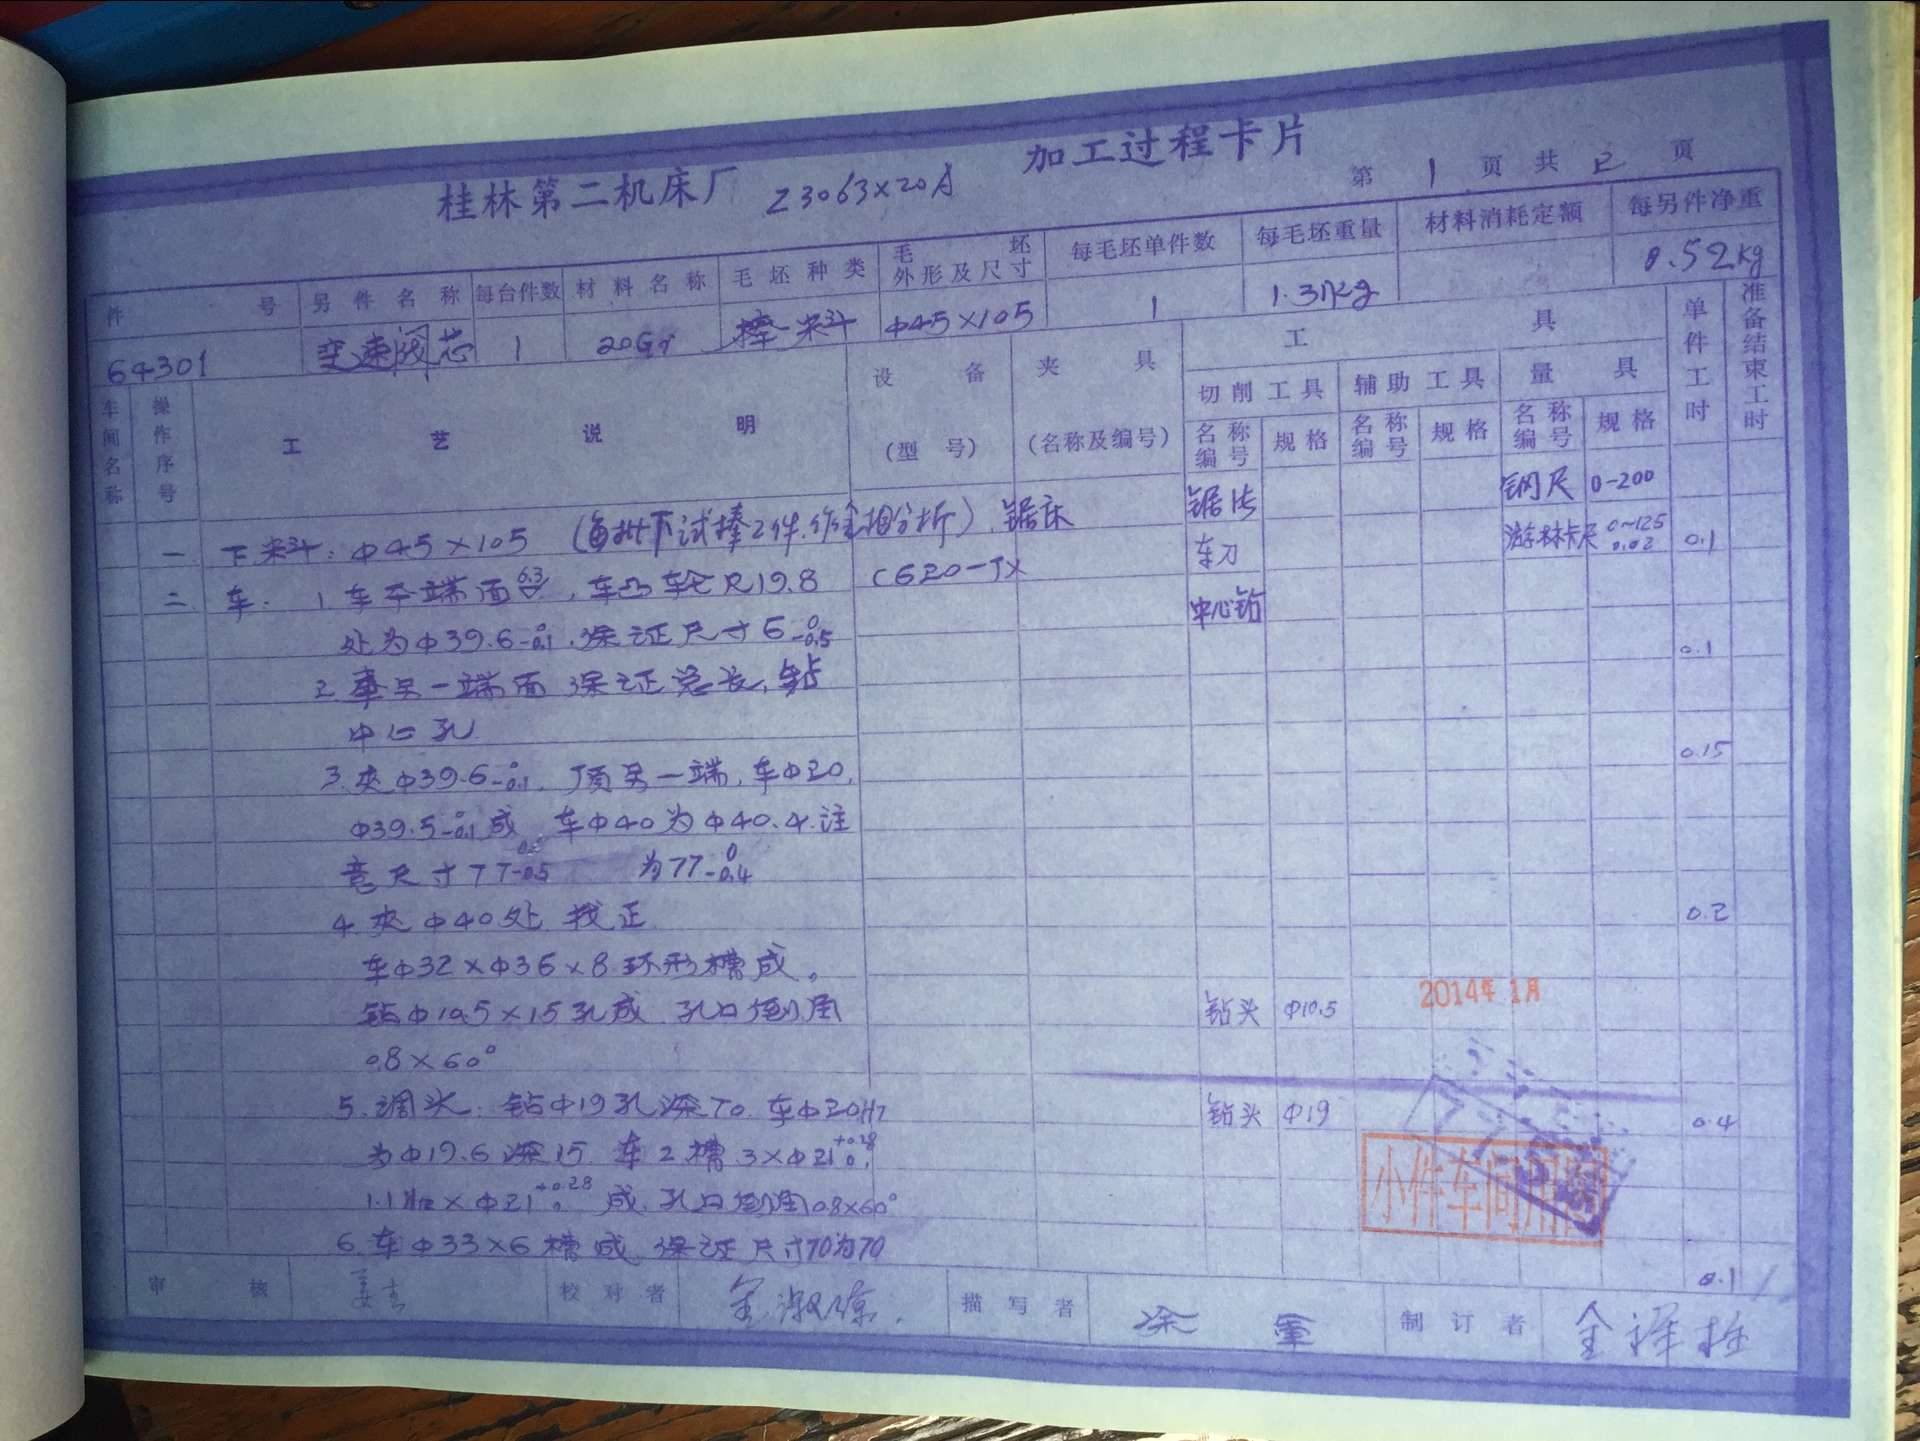 桂林第二机床厂 Z3063×20A 加工过程卡片
第 1 页 共 2 页
件号 另件名称 每台件数 材料名称 毛坯种类 毛坯外形及尺寸 每毛坯单件数 每毛坯重量 材料消耗定额 每另件净重
64301 变速阀芯 1 20Cr 棒料 Φ45×105 1 1.31kg 0.52kg
车间名称 操作序号 工艺说明 设备(型号) 夹具(名称及编号) 工具 单件工时 准备结束工时
切削工具 辅助工具 量具
名称编号 规格 名称编号 规格 名称编号 规格
锯片 钢尺 0-200
一 下料：Φ45×105 (每批下试棒2件.作金相分析). 锯床
车刀 游标卡尺 0~125 0.02 0.1
二 车： 1. 车平端面6.3, 车凸轮R19.8 C620-1X
处为Φ39.6-0.1 0, 保证尺寸6-0.5 0 中心钻
2. 车另一端面 保证总长, 钻 0.1
中心孔
3. 夹Φ39.6-0.1 0, 顶另一端, 车Φ20, 0.15
Φ39.5-0.1 0成, 车Φ40为Φ40.4. 注
意尺寸77-0.5 为77-0.4 0
4. 夹Φ40处 找正 0.2
车Φ32×Φ36×8环形槽成。
钻Φ10.5×15孔成 孔口倒角 钻头 Φ10.5
0.8×60°
2014年1月
5. 调头, 钻Φ19孔深70. 车Φ20H7 钻头 Φ19 0.4
为Φ19.6深15. 车2槽 3×Φ21+0.28 0,
1.1×Φ21+0.28 0 成. 孔口倒角0.8×60°
小件车间用图
6. 车Φ33×6槽成 保证尺寸70为70
0.1
审核 校对者 描写者 制订者